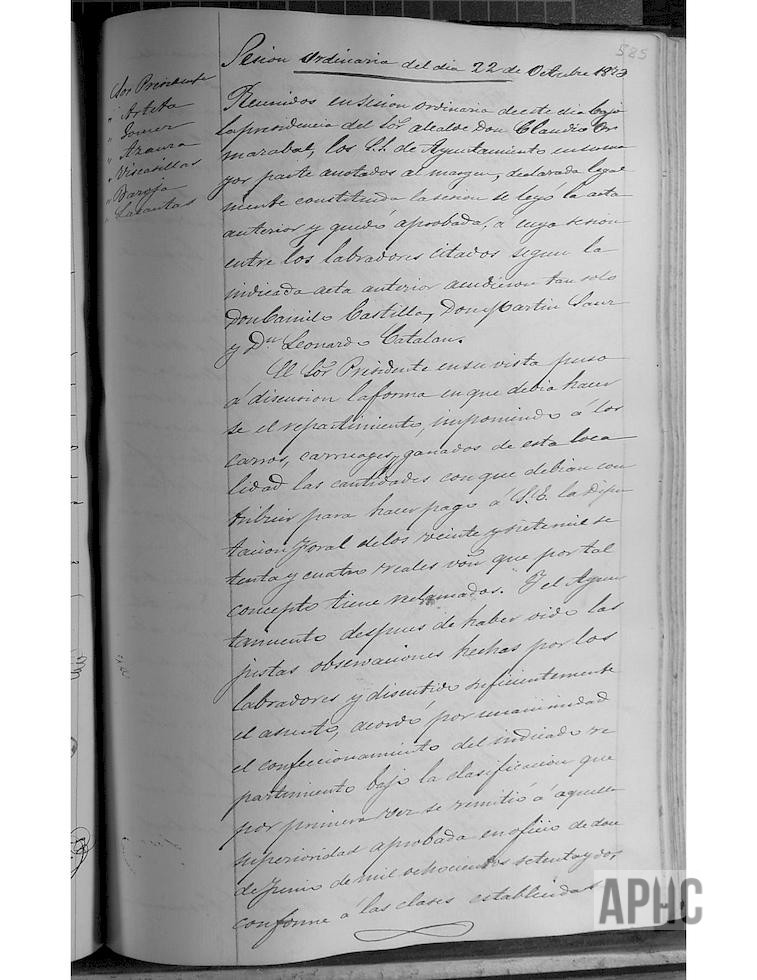 585
Sesion ordinaria del dia 22 de Octubre 1873
Sor Presidente
" Arteta
" Gomez
" Azaura
" Viscasillas
" Baroja
" Lacantas
Reunidos en sesion ordinaria de este dia bajo
la presidencia del Sor alcalde Don Claudio Or
mazabal, los S.S. de Ayuntamiento en su ma
yor parte anotados al margen, declarada legal
mente constituida la sesion se leyó la acta
anterior y quedó aprobada, a cuya sesion
entre los labradores citados segun la
indicada acta anterior acudieron tan solo
Don Camilo Castilla, Don Martin Sanz
y Dn Leonardo Catalan.
El Sor Presidente en su vista puso
á discusion la forma en que debia hacer
se el repartimiento, imponiendo á los
carros, carruages, ganados de esta loca
lidad las cantidades con que debian con
tribuir para hacer pago á S.E. la Dipu
tacion Foral de los veinte y siete mil se
tenta y cuatro reales von que por tal
concepto tiene reclamados. Y el Ayun
tamiento despues de haber oido las
justas observaciones hechas por los
labradores y discutido suficientemente
el asunto, acordó por unanimidad
el confeccionamiento del indicado re
partimiento bajo la clasificacion que
por primera vez se remitió á aquella
superioridad aprobada en oficio de doce
de Junio de mil ochocientos setenta y dos,
conforme á las clases establecidas
APHC